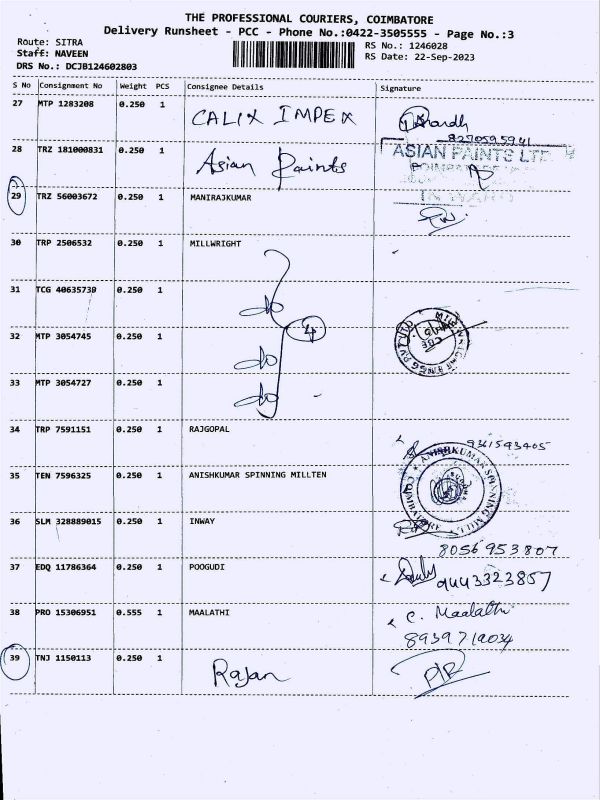 THE PROFESSIONAL COURIERS, COIMBATORE
Delivery Runsheet - PCC - Phone No.:0422-3505555 - Page No.:3
Route: SITRA
Staff: NAVEEN
DRS No.: DCJB124602803
RS No.: 1246028
RS Date: 22-Sep-2023
S No Consignment No Weight PCS Consignee Details Signature
27 MTP 1283208 0.250 1 CALIX IMPEX
8270595941
28 TRZ 181000831 0.250 1 Asian Paints ASIAN PAINTS LTD
29 TRZ 56003672 0.250 1 MANIRAJKUMAR
30 TRP 2506532 0.250 1 MILLWRIGHT
31 TCG 40635739 0.250 1 do
4
32 MTP 3054745 0.250 1 do
33 MTP 3054727 0.250 1 do
34 TRP 7591151 0.250 1 RAJGOPAL
9361593405
35 TEN 7596325 0.250 1 ANISHKUMAR SPINNING MILLTEN ANISHKUMAR SPINNING MILL COIMBATORE
36 SLM 328889015 0.250 1 INWAY
8056953807
37 EDQ 11786364 0.250 1 POOGUDI 9443323857
38 PRO 15306951 0.555 1 MAALATHI C. Maalathi
8939719034
39 TNJ 1150113 0.250 1 Rajan